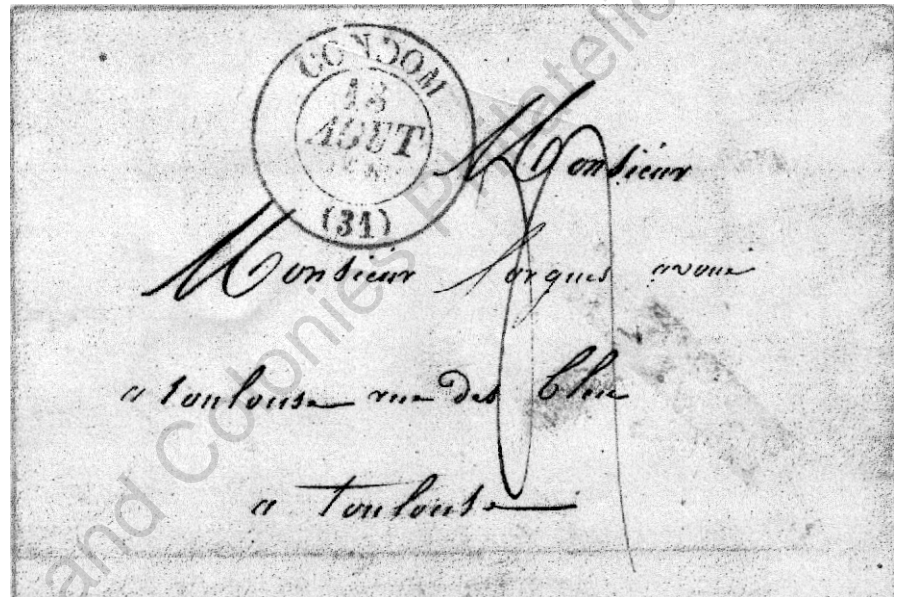 CONDOM
18
AOUT
(31)
Monsieur
Monsieur avoué
a toulouse rue des
a Toulouse
and Colonies Philatelic